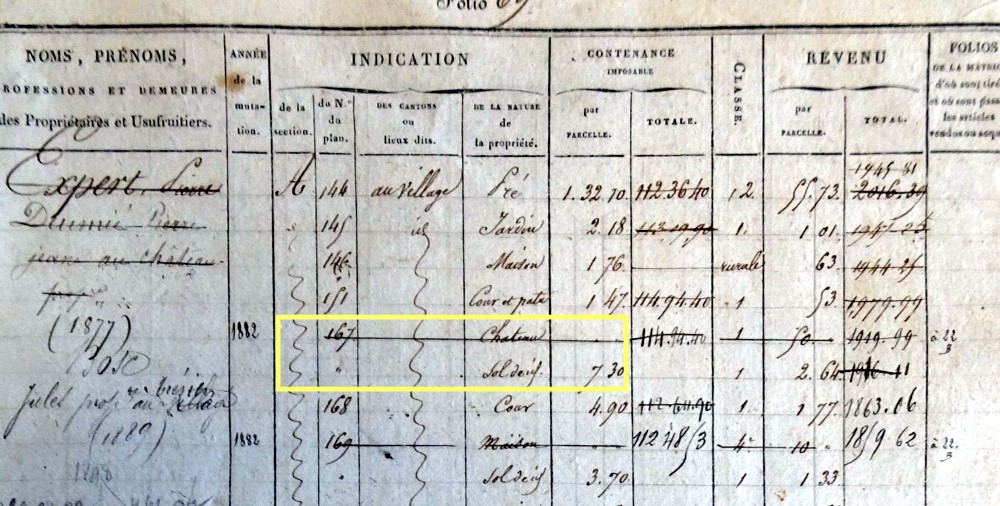 Folio 69
NOMS, PRÉNOMS,
PROFESSIONS ET DEMEURES
des Propriétaires et Usufruitiers.
ANNÉE
de la
muta-
tion.
INDICATION
de la
section.
du N.º
du
plan.
DES CANTONS
ou
lieux dits.
DE LA NATURE
de
la propriété.
CONTENANCE
IMPOSABLE
par
PARCELLE.
TOTALE.
CLASSE.
REVENU
par
PARCELLE.
TOTAL.
FOLIOS
DE LA MATRI
d'où sont tiré
et où sont pass
les articles
vendus ou acqu
1945 81
Expert, Pierre A 144 au village Pré 1. 32. 70. 112 36 40 1 2. 55. 73. 2016. 39
Pierre 145 id Jardin 2. 18. 113 19 90 1. 1 01.
jeune au château 146 Maison 1 76. rurale 63. 1944 25
151 Cour et pata 1 47. 114 94 40 1 53. 1979. 99
(1877) 1882 167 Chateau 114. 94. 40 1 50. 1919. 99 à 22
" Sol d'éd. 7 30 1 2. 64
Jules prop. au 168 Cour 4. 90. 112 64 90 1 1 77. 1863. 06
(1889) 1882 169 Maison 112 48 13 4e 10 1859 62 à 22
1898 " Sol d'éd 3. 70. 1 1 33